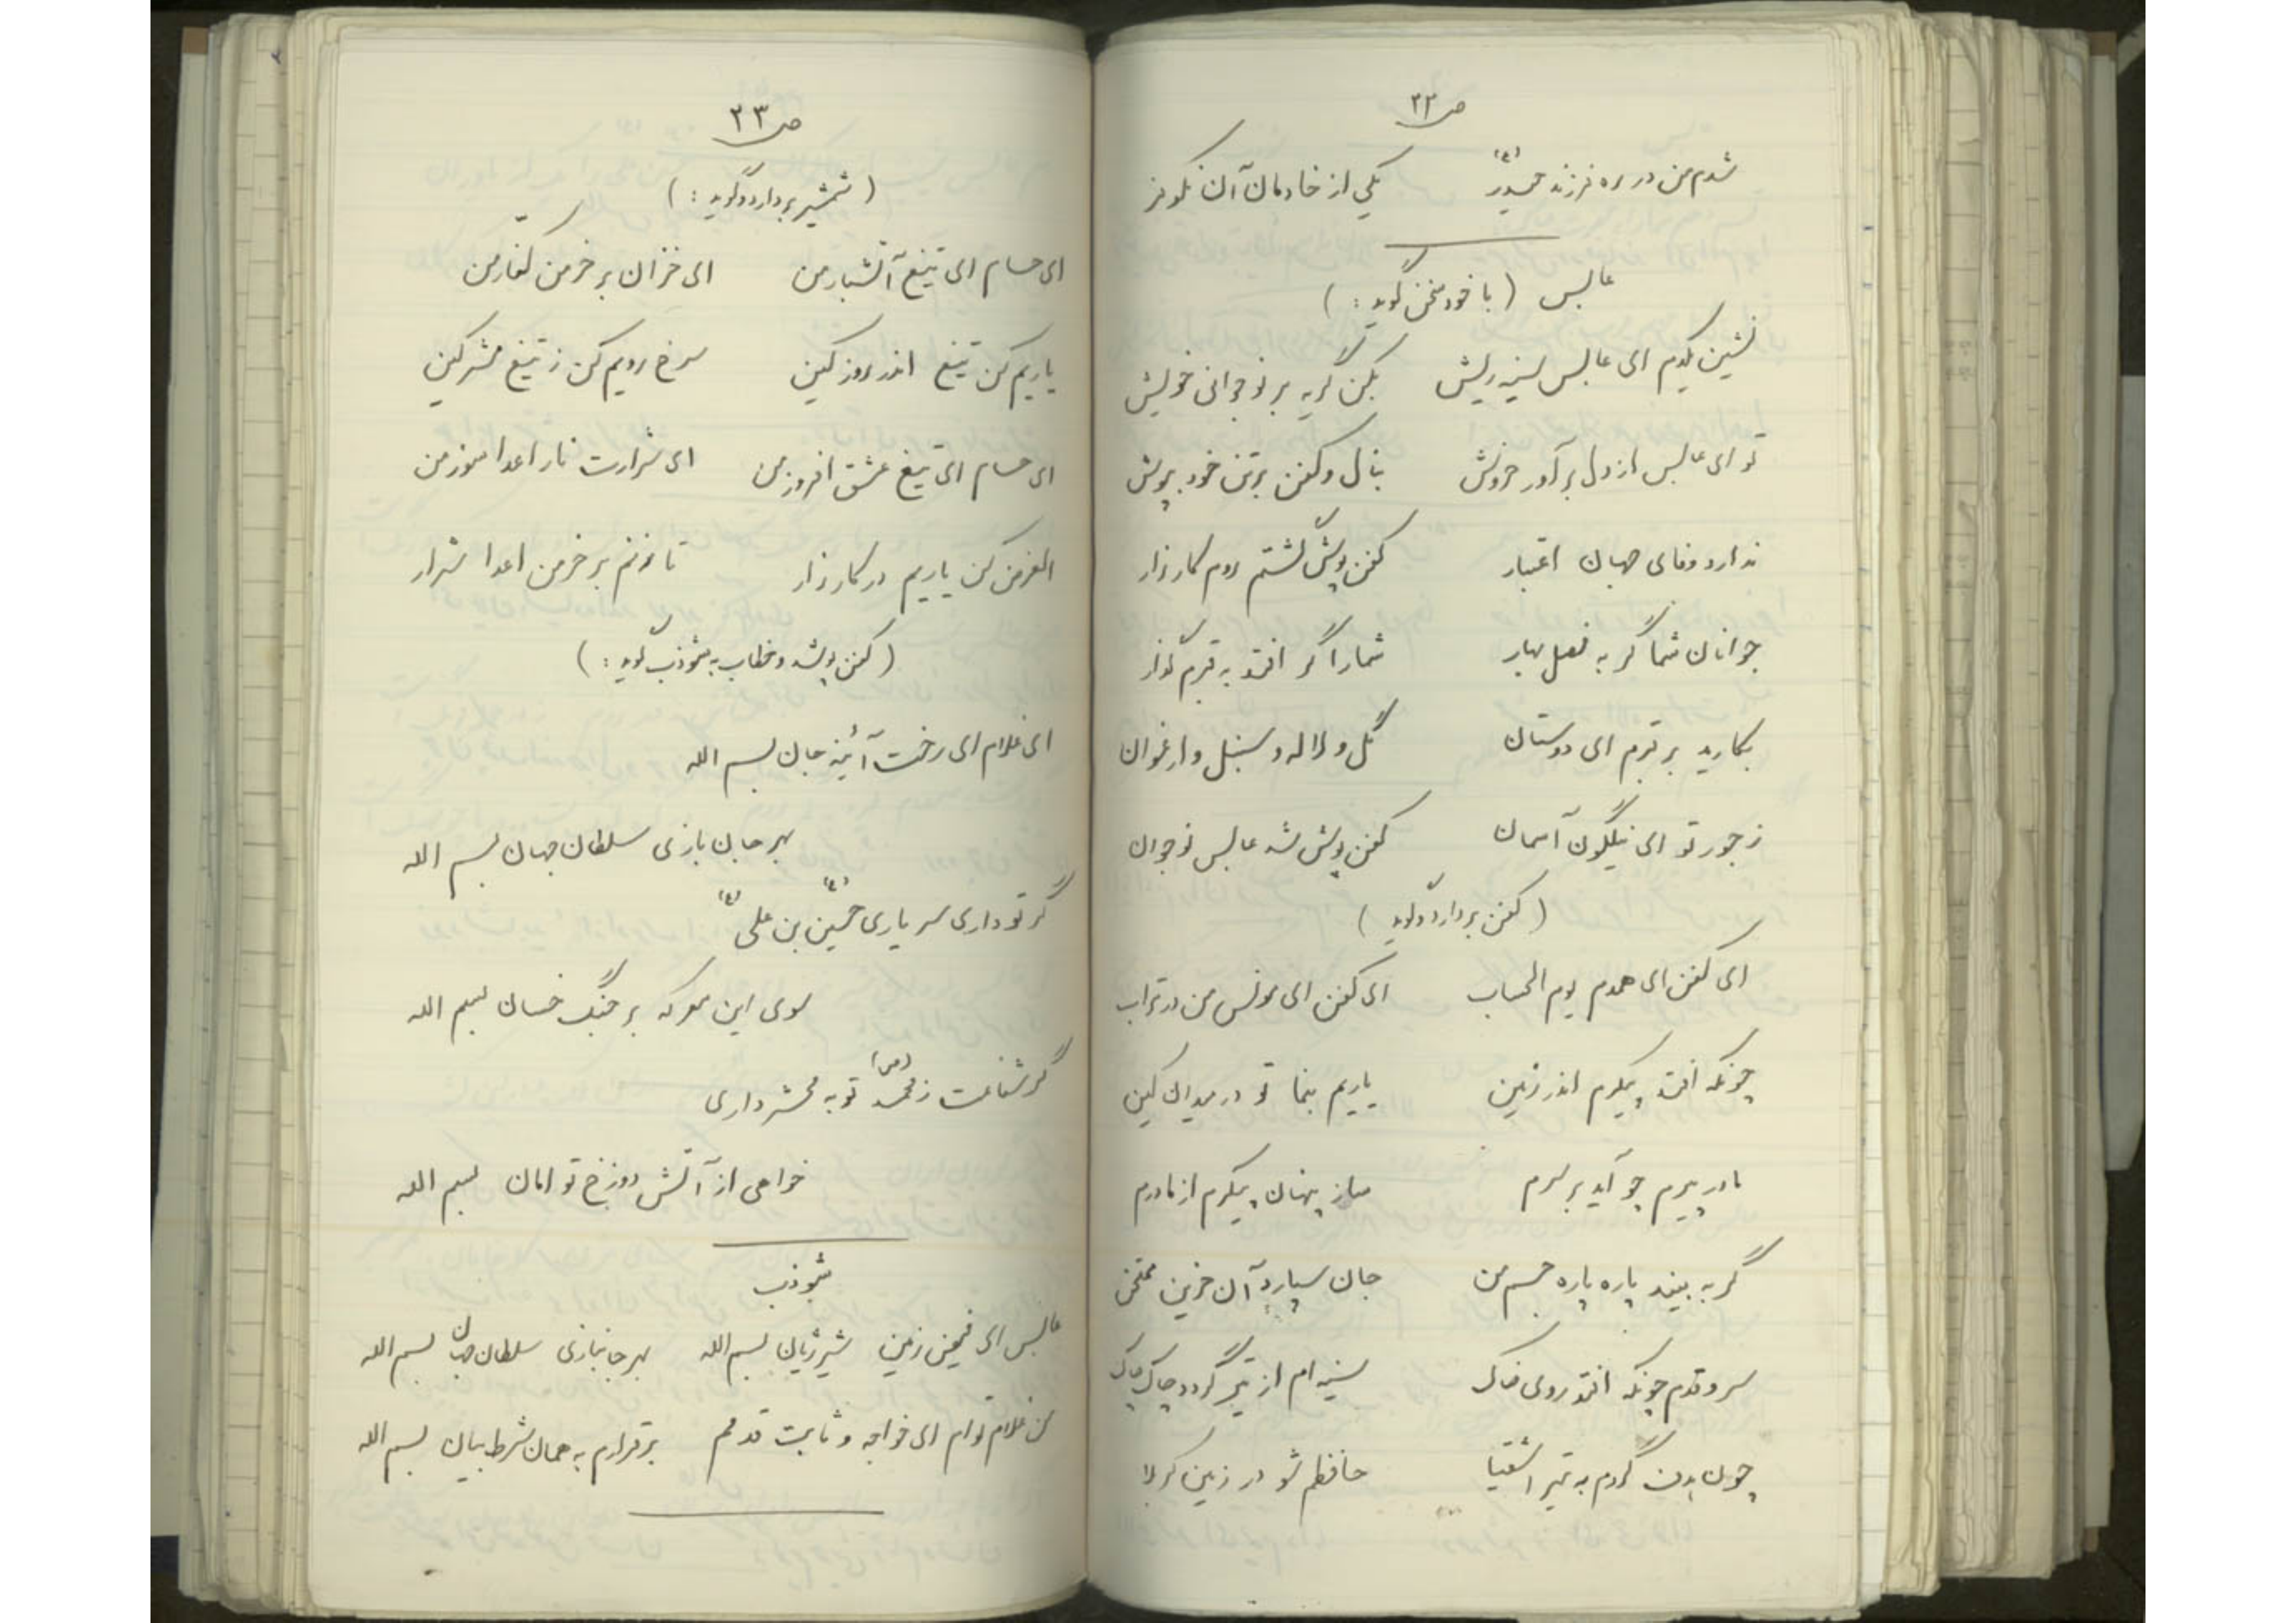 ص ۲۲
شدم من در ره فرزند حیدر (ع) یکی از خادمان آن نکو فر
عابس (با خود سخن گوید:)
نشین یکدم ای عابس سینه ریش بکن گریه بر نوجوانی خویش
تو ای عابس از دل برآور خروش بنال و کفن بر تن خود بپوش
ندارد وفای جهان اعتبار کفن پوش گشتم روم کارزار
جوانان شما گر به فصل بهار شما را گر افتد به قبرم گذار
بکارید بر قبرم ای دوستان گل و لاله و سنبل و ارغوان
ز جور تو ای نیلگون آسمان کفن پوش شد عابس نوجوان
(کفن بردارد و گوید)
ای کفن ای همدم یوم الحساب ای کفن ای مونس من در تراب
چونکه افتد پیکرم اندر زمین یاریم بنما تو در میدان کین
مادر پیرم چو آید بر سرم ساز پنهان پیکرم از مادرم
گر به بیند پاره پاره جسم من جان سپارد آن حزین ممتحن
سرو قدم چونکه افتد روی خاک سینه ام از تیر گردد چاک چاک
چون بدن گردم به تیر اشقیا حافظم شو در زمین کربلا
ص ۲۳
(شمشیر بردارد و گوید:)
ای حسام ای تیغ آتشبار من ای خزان بر خرمن کفار من
یاریم کن تیغ اندر روز کین سرخ رویم کن ز تیغ مشرکین
ای حسام ای تیغ عشق افروز من ای شرارت نار اعدا سوز من
الغرض کن یاریم در کارزار تا فزنم بر خرمن اعدا شرار
(کفن پوشد و خطاب به شوذب گوید:)
ای غلام ای رخت آئینه جان بسم الله
بهر جان بازی سلطان جهان بسم الله
گر تو داری سر یاری حسین (ع) بن علی (ع)
سوی این معرکه بر جنگ خسان بسم الله
گر شفاعت ز محمد (ص) تو به محشر داری
خواهی از آتش دوزخ تو امان بسم الله
شوذب
عابس ای زمین شیر ژیان بسم الله بهر جانبازی سلطان جهان بسم الله
من غلام توام ای خواجه و ثابت قدمم برقرارم به همان شرط بیان بسم الله